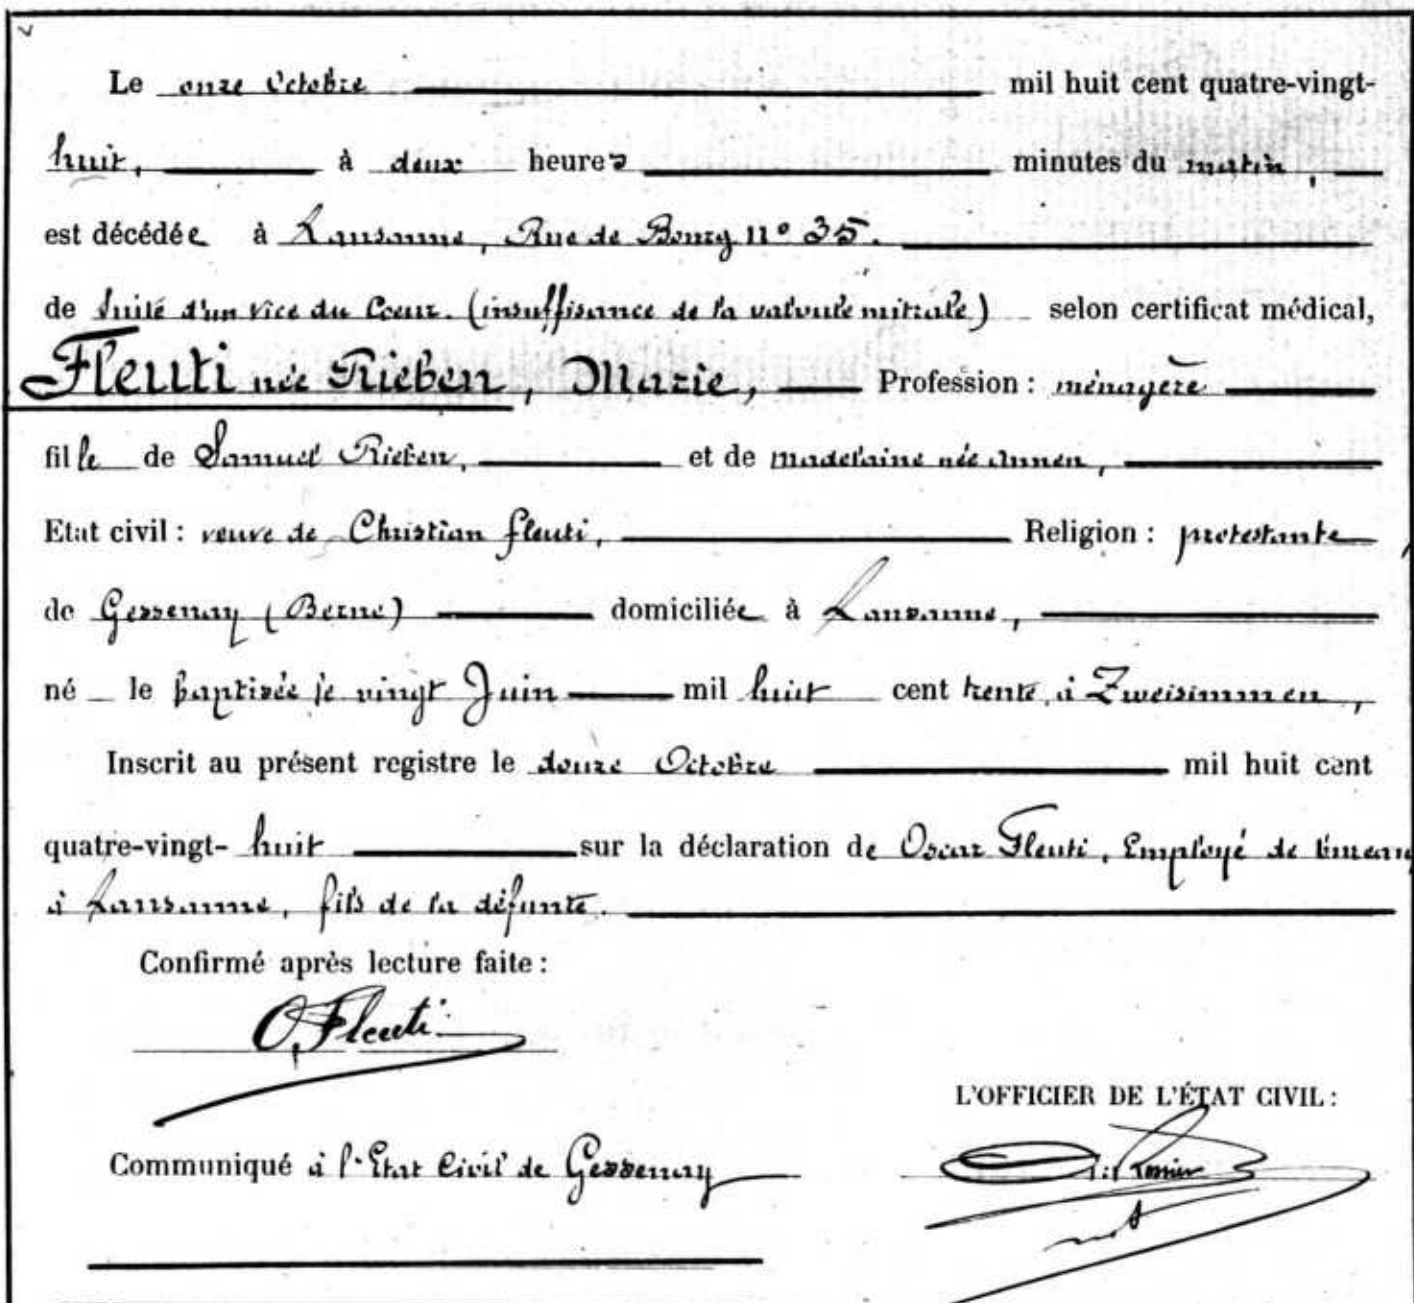 Le onze Octobre mil huit cent quatre-vingt-
huit, à deux heures minutes du matin,
est décédée à Lausanne, Rue de Bourg n° 35.
de suite d'un vice du Coeur. (insuffisance de la valvule mitrale) selon certificat médical,
Fleuti née Rieben, Marie, Profession : ménagère
fille de Samuel Rieben, et de Madelaine née Annen,
Etat civil : veuve de Christian Fleuti, Religion : protestante,
de Gessenay (Berne) domiciliée à Lausanne,
né le baptisée le vingt Juin mil huit cent trente, à Zweisimmen,
Inscrit au présent registre le douze Octobre mil huit cent
quatre-vingt- huit sur la déclaration de Oscar Fleuti, Employé de bureau
à Lausanne, fils de la défunte.
Confirmé après lecture faite :
O. Fleuti
L'OFFICIER DE L'ÉTAT CIVIL :
Communiqué à l'Etat Civil de Gessenay